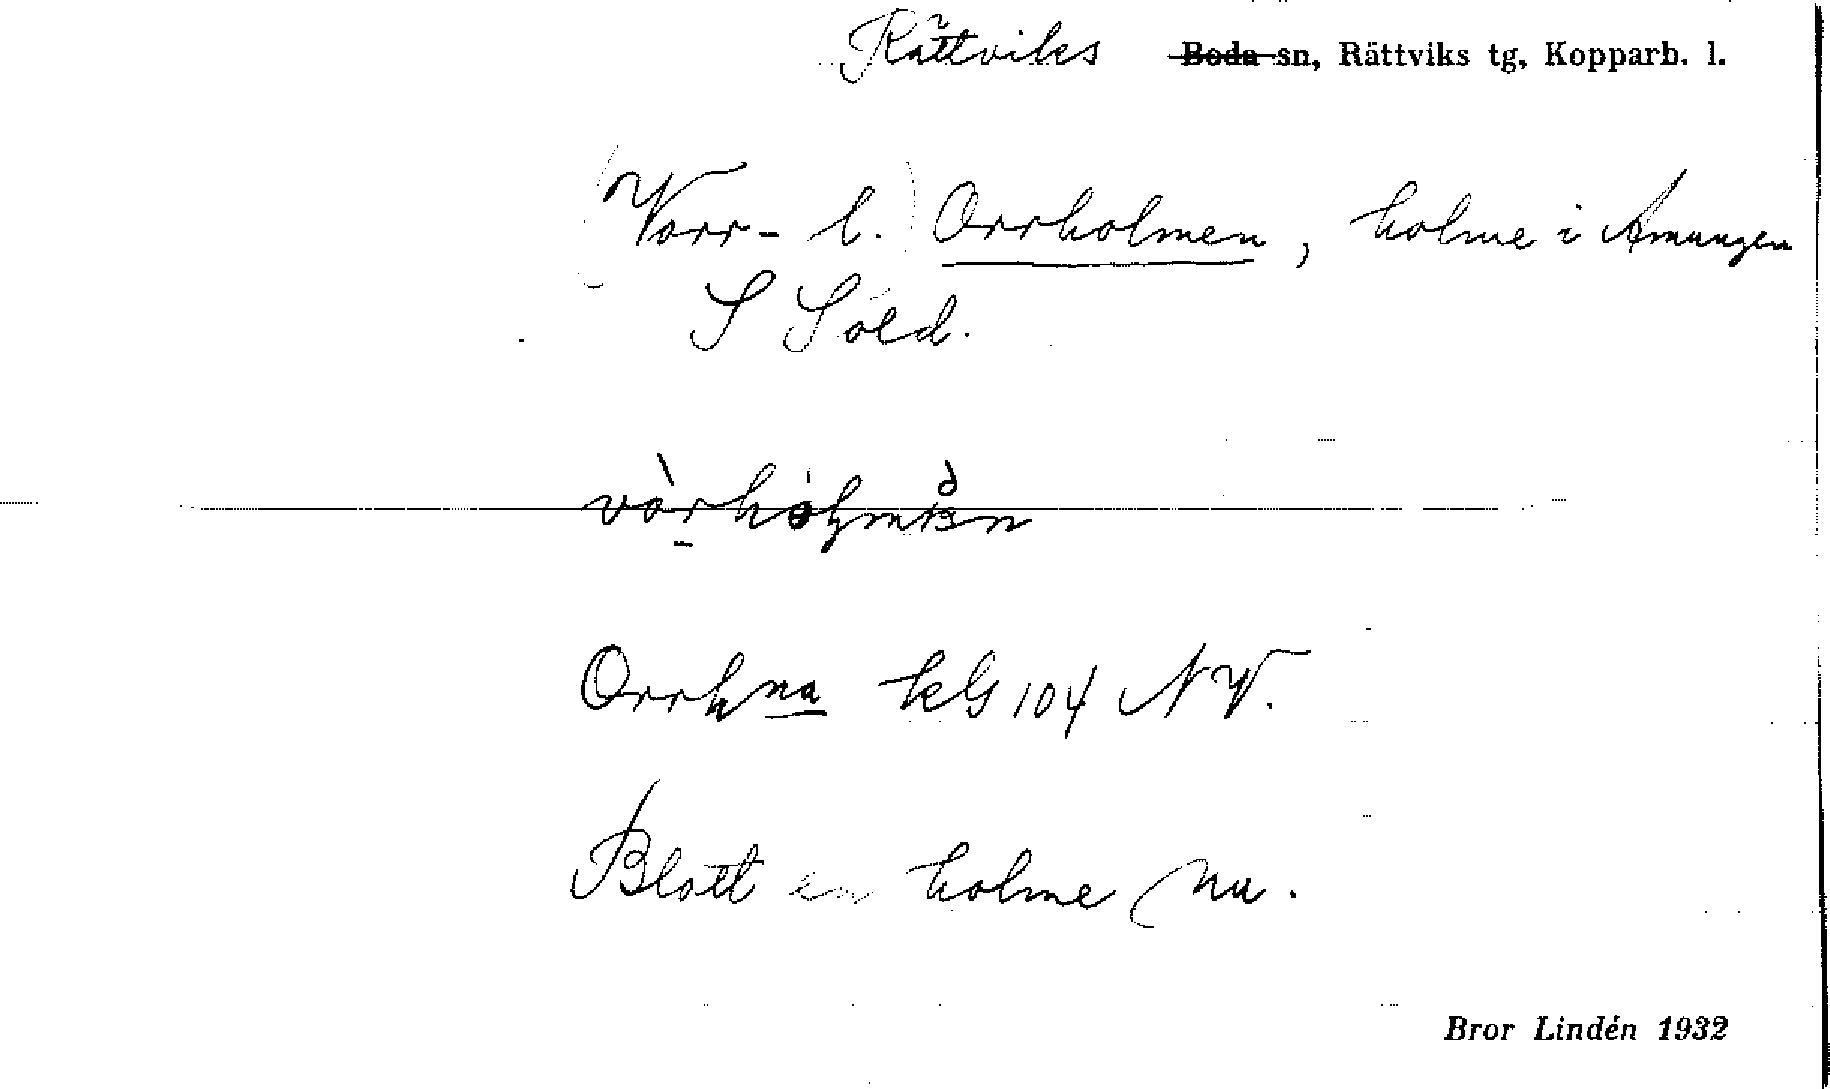 Rättviks ~~Boda~~ sn, Rättviks tg, Kopparb. l.
(Vorr- l.) Orrholmen, holme i Amungen
S Söld.
Orrhna kG 104 NV.
Blott en holme nu.
Bror Lindén 1932